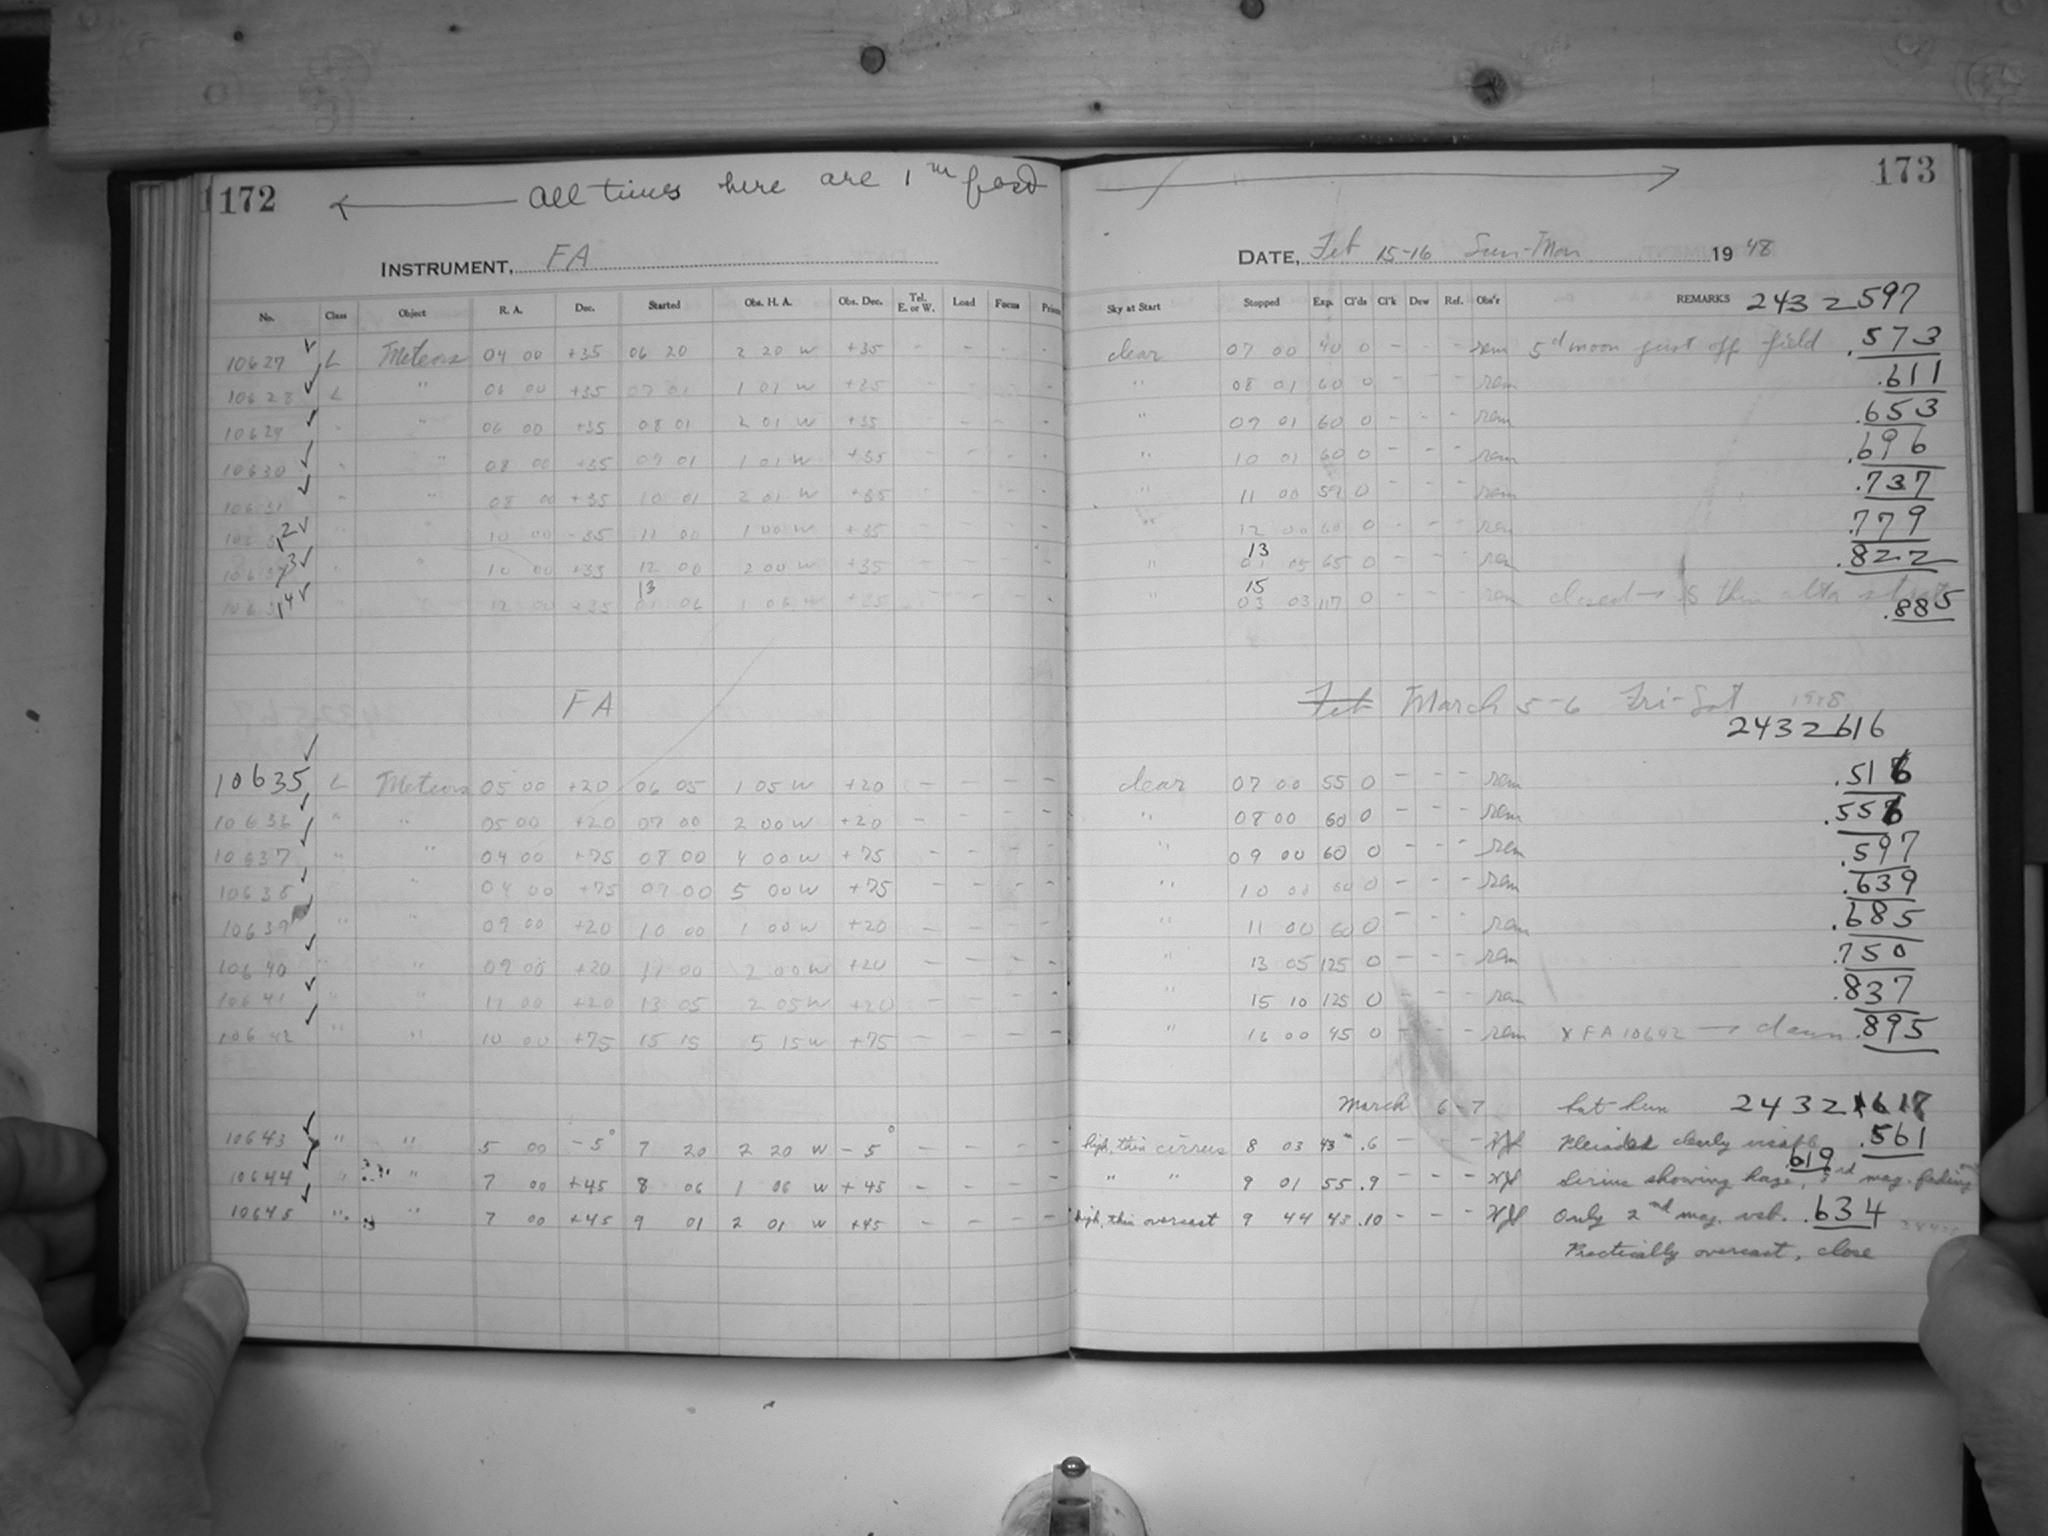 172 ← All times here are 1 m fast → 173
INSTRUMENT, FA DATE, Feb 15-16 Sun-Mon 1948
No. Class Object R. A. Dec. Started Obs. H. A. Obs. Dec. Tel. E. or W. Load Focus Sky at Start Stopped Exp. Cl'ds Cl'k Dew Ref. Obs'r REMARKS 2432597
10627 ✓ L Meteors 04 00 +35 06 20 2 20 W +35 - - - - clear 07 00 40 0 - - - rem 5d moon just off field .573
10628 ✓ L " 06 00 +35 07 01 1 01 W +35 - - - - " 08 01 60 0 - - - rem .611
10629 ✓ " " 06 00 +35 08 01 2 01 W +35 - - - - " 09 01 60 0 - - - rem .653
10630 ✓ " " 08 00 +35 09 01 1 01 W +35 - - - - " 10 01 60 0 - - - rem .696
10631 ✓ " " 08 00 +35 10 01 2 01 W +35 - - - - " 11 00 59 0 - - - rem .737
10632 ✓ " " 10 00 -35 11 00 1 00 W +35 - - - - " 12 00 60 0 - - - rem .779
10633 ✓ " " 10 00 +35 12 00 2 00 W +35 - - - - " 13 05 65 0 - - - rem .822
10634 ✓ " " 12 00 +35 13 06 1 06 W +35 - - - - " 15 03 117 0 - - - rem closed → thin alto .885
FA Feb March 5-6 Fri-Sat 1948
2432616
10635 ✓ L Meteors 05 00 +20 06 05 1 05 W +20 - - - - clear 07 00 55 0 - - - rem .516
10636 ✓ " " 05 00 +20 07 00 2 00 W +20 - - - - " 08 00 60 0 - - - rem .556
10637 ✓ " " 04 00 +75 08 00 4 00 W +75 - - - - " 09 00 60 0 - - - rem .597
10638 ✓ " " 04 00 +75 09 00 5 00 W +75 - - - - " 10 00 60 0 - - - rem .639
10639 ✓ " " 09 00 +20 10 00 1 00 W +20 - - - - " 11 00 60 0 - - - rem .685
10640 ✓ " " 09 00 +20 11 00 2 00 W +20 - - - - " 13 05 125 0 - - - rem .750
10641 ✓ " " 11 00 +20 13 05 2 05 W +20 - - - - " 15 10 125 0 - - - rem .837
10642 ✓ " " 10 00 +75 15 15 5 15 W +75 - - - - " 16 00 45 0 - - - rem X FA 10642 → dawn .895
March 6-7 Sat-Sun 2432617
10643 ✓ " " 5 00 -5° 7 20 2 20 W -5° - - - - high, thin cirrus 8 03 43m .6 - - - Pleiades clearly visible .561
10644 ✓ " " 7 00 +45 8 06 1 06 W +45 - - - - " " 9 01 55 .9 - - - Sirius showing haze, 3rd mag. fading 619
10645 ✓ " " 7 00 +45 9 01 2 01 W +45 - - - - high, thin overcast 9 44 43 .10 - - - Only 2nd mag. vsb. .634
Practically overcast, close